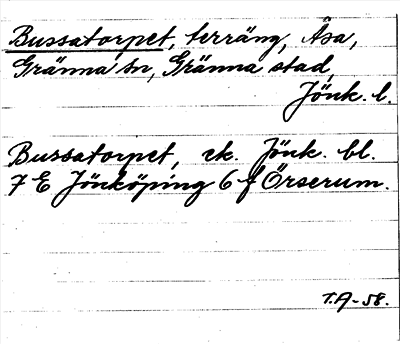 Bussatorpet, terräng, Åsa,
Gränna sn, Gränna stad,
Jönk. l.
Bussatorpet, ek. Jönk. bl.
7 E Jönköping 6 f Örserum.
T.A-58.